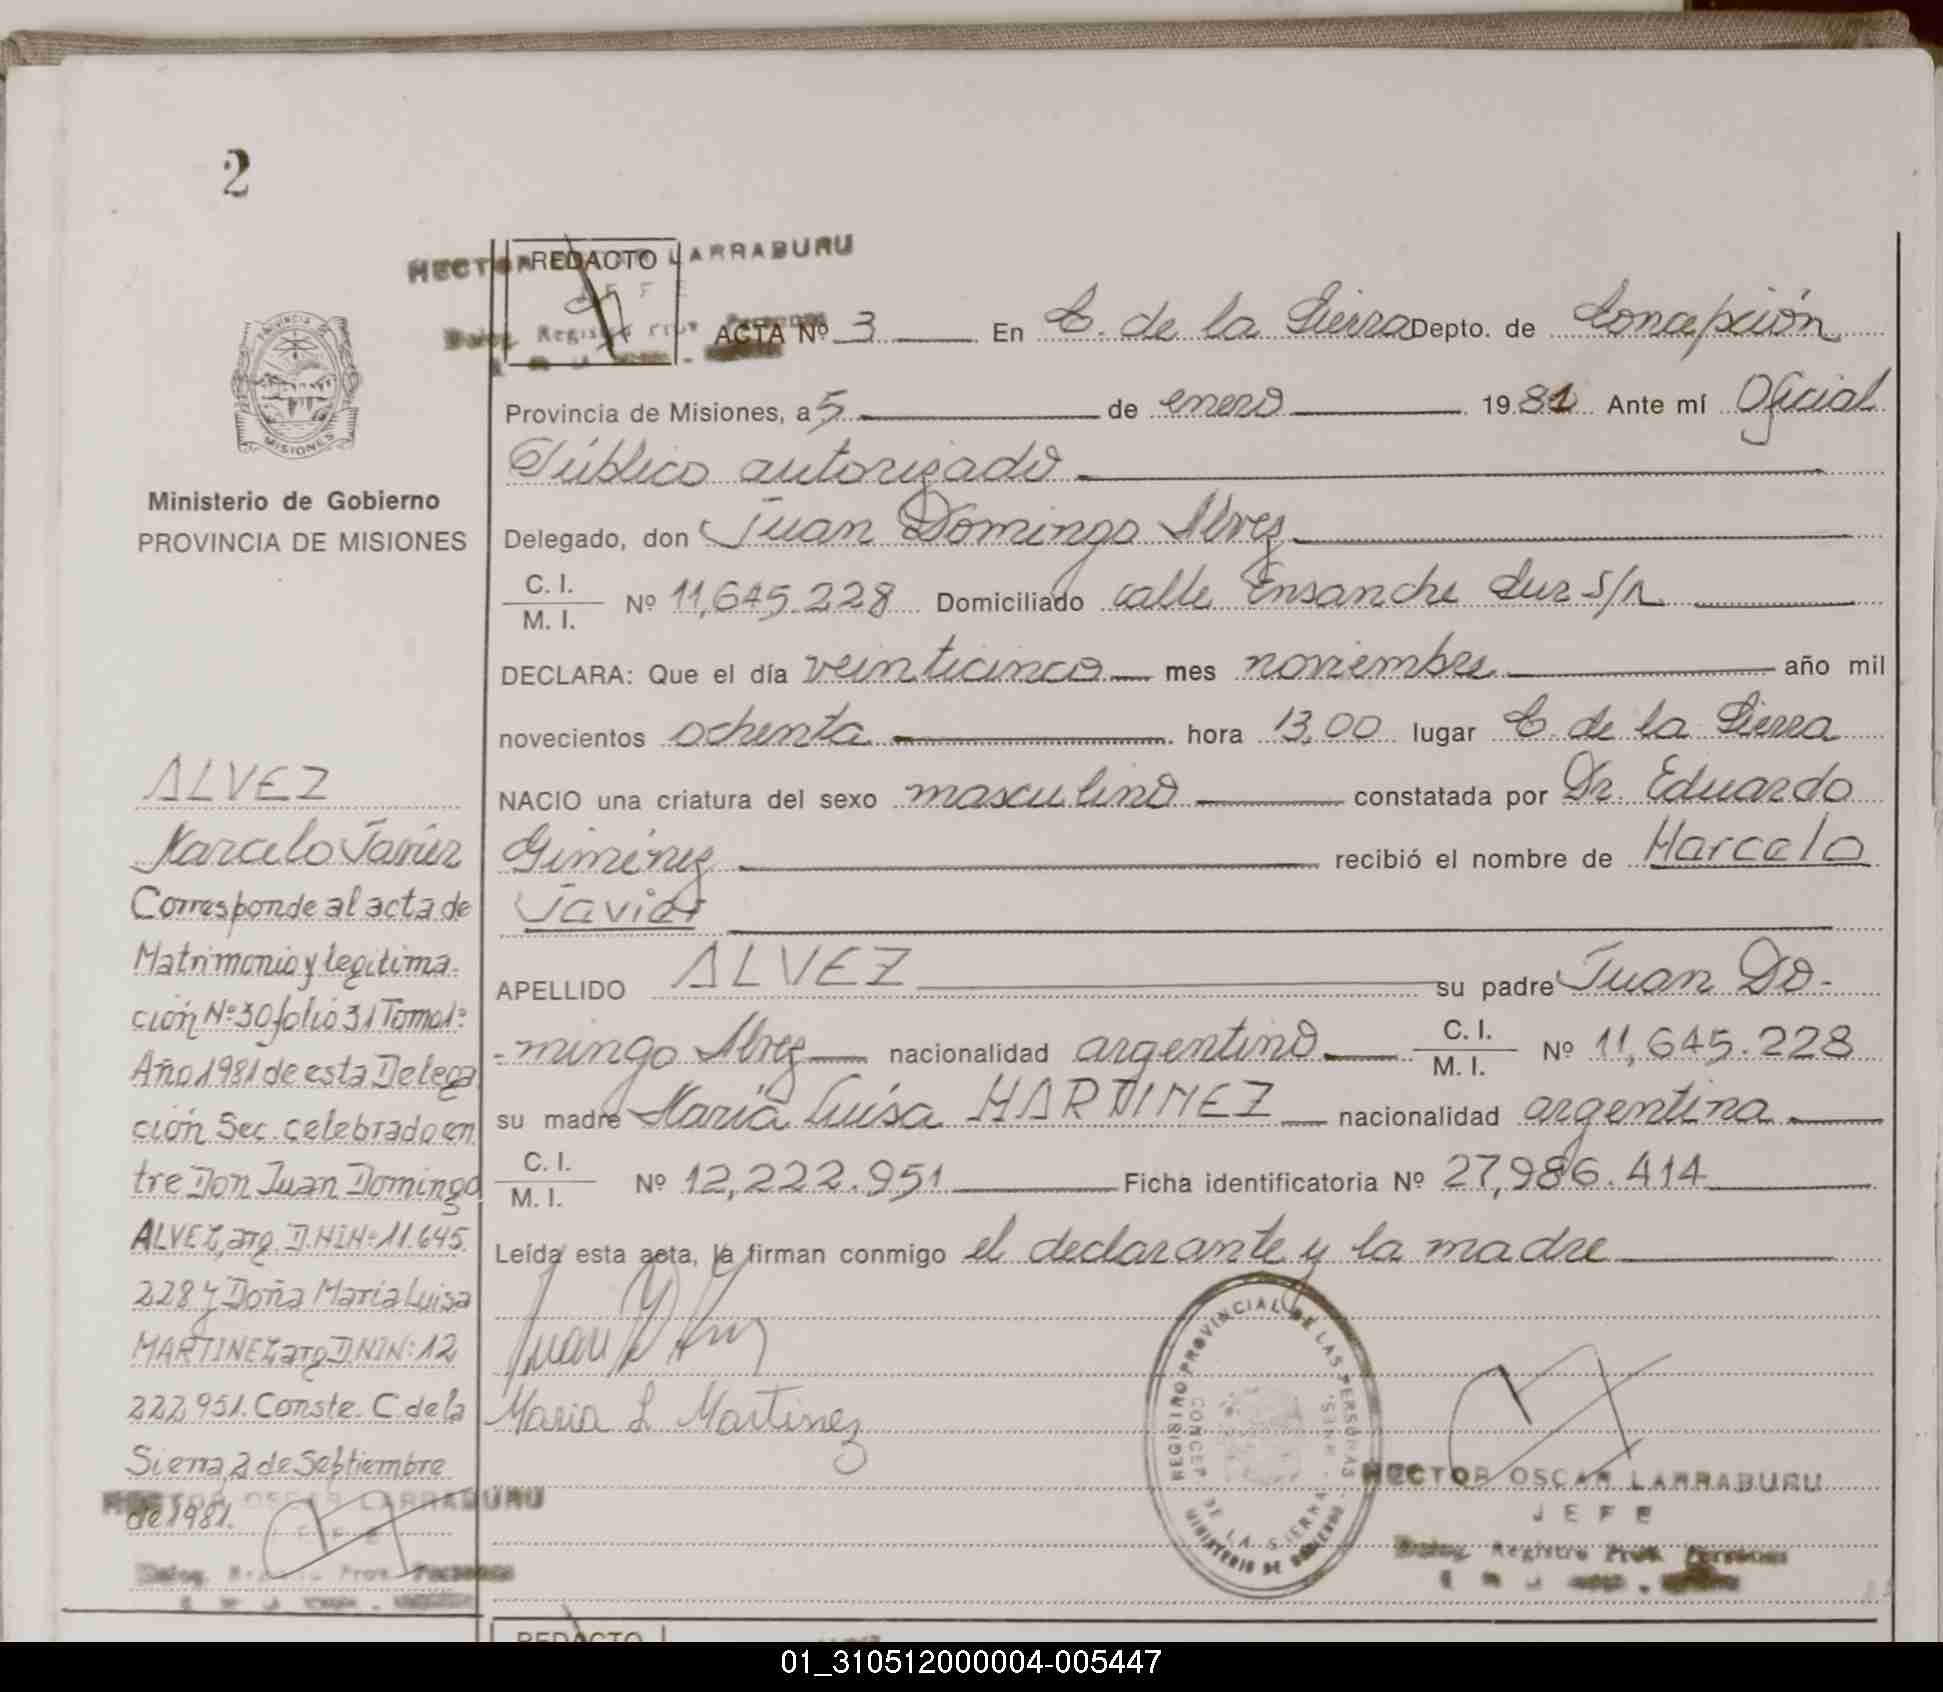 2
HECTOR LARRABURU
REDACTO
JEFE
ACTA Nº 3 En C. de la Sierra Depto. de Concepción
Provincia de Misiones, a 5 de enero 1981 Ante mí Oficial
Público autorizado
Delegado, don Juan Domingo Alvez
C. I.
M. I. Nº 11,645.228 Domiciliado calle Ensanche Sur s/n
DECLARA: Que el día veinticinco mes noviembre año mil
novecientos ochenta hora 13,00 lugar C. de la Sierra
NACIO una criatura del sexo masculino constatada por Dr. Eduardo
Giménez recibió el nombre de Marcelo
Javier
APELLIDO ALVEZ su padre Juan Do-
-mingo Alvez nacionalidad argentino C. I. M. I. Nº 11,645.228
su madre María Luisa MARTINEZ nacionalidad argentina
C. I.
M. I. Nº 12,222.951 Ficha identificatoria Nº 27,986.414
Leída esta acta, la firman conmigo el declarante y la madre
Juan D Alvez
Maria L Martinez
REGISTRO PROVINCIAL DE LAS PERSONAS
CONCEP. DE LA SIERRA - MNES.
MINISTERIO DE GOBIERNO
HECTOR OSCAR LARRABURU
JEFE
Deleg. Registro Prov. Personas
PROVINCIA DE
MISIONES
Ministerio de Gobierno
PROVINCIA DE MISIONES
ALVEZ
Marcelo Javier
Corresponde al acta de
Matrimonio y legitima-
ción Nº 30 folio 31 Tomo 1º
Año 1981 de esta Delega
ción Sec. celebrado en
tre Don Juan Domingo
ALVEZ, arg. D.N.I.Nº 11.645.
228 y Doña María Luisa
MARTINEZ arg D.N.I.N: 12
222951. Conste. C. de la
Sierra, 2 de Septiembre
de 1981.
HECTOR OSCAR LARRABURU
JEFE
Deleg. Registro Prov. Personas
REDACTO
01_310512000004-005447